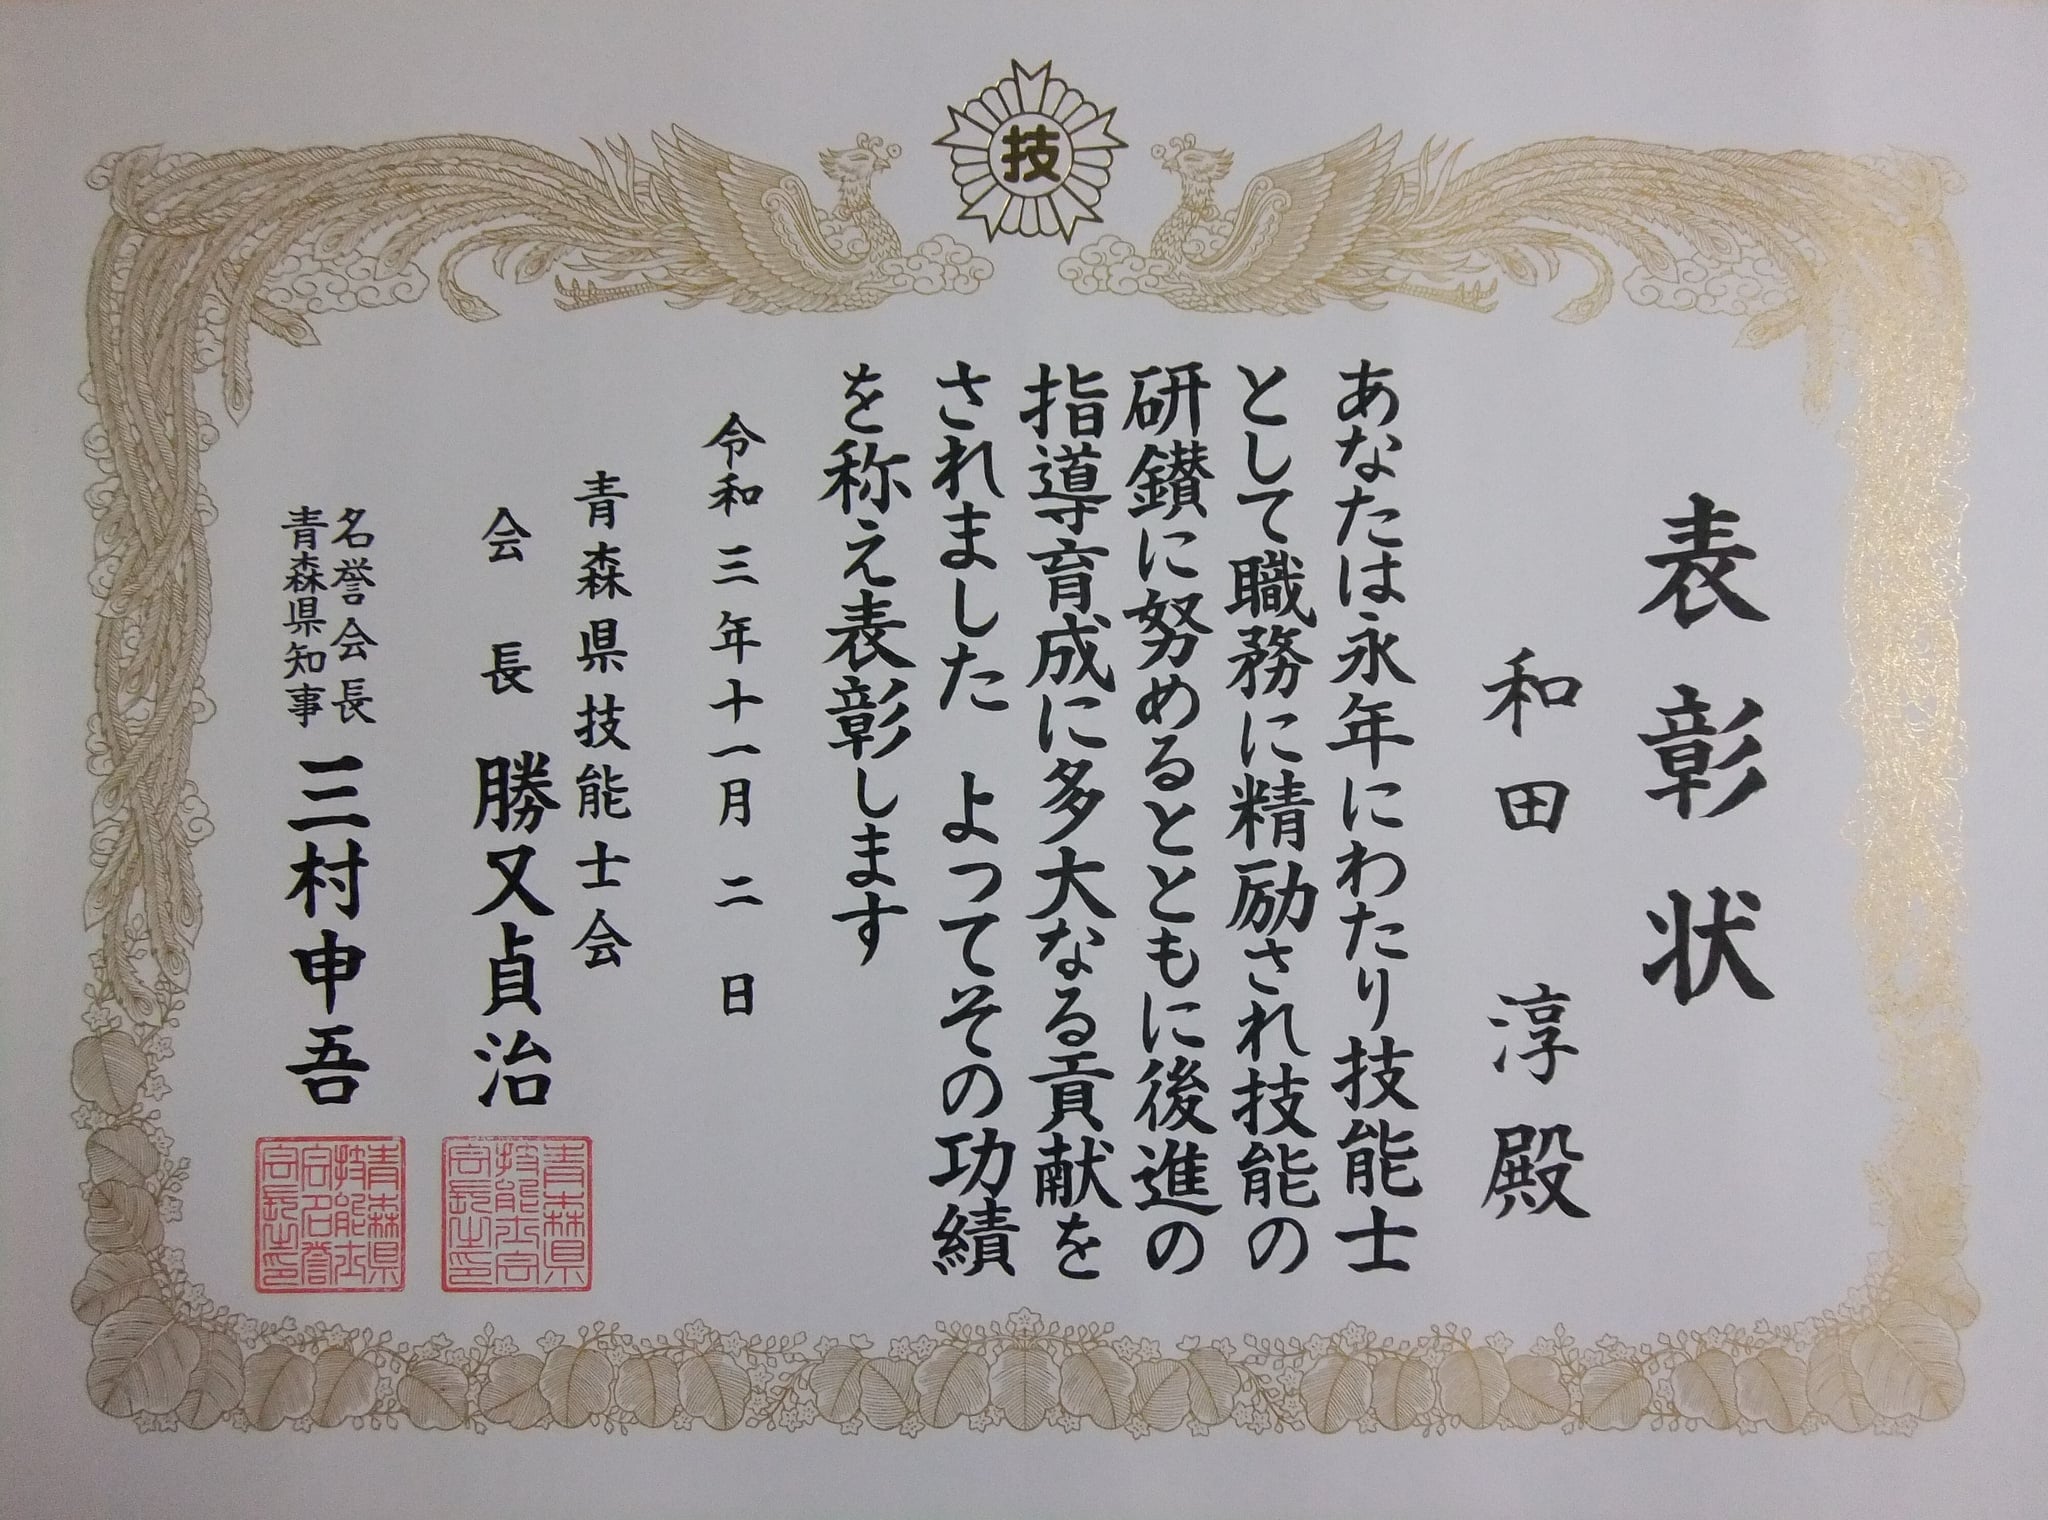 技
表彰状
和田 淳 殿
あなたは永年にわたり技能士
として職務に精励され技能の
研鑚に努めるとともに後進の
指導育成に多大なる貢献を
されました よってその功績
を称え表彰します
令和三年十一月二日
青森県技能士会
会長 勝又貞治
名誉会長
青森県知事 三村申吾
青森県
技能士会
会長之印
青森県
技能士
会名誉
会長之印